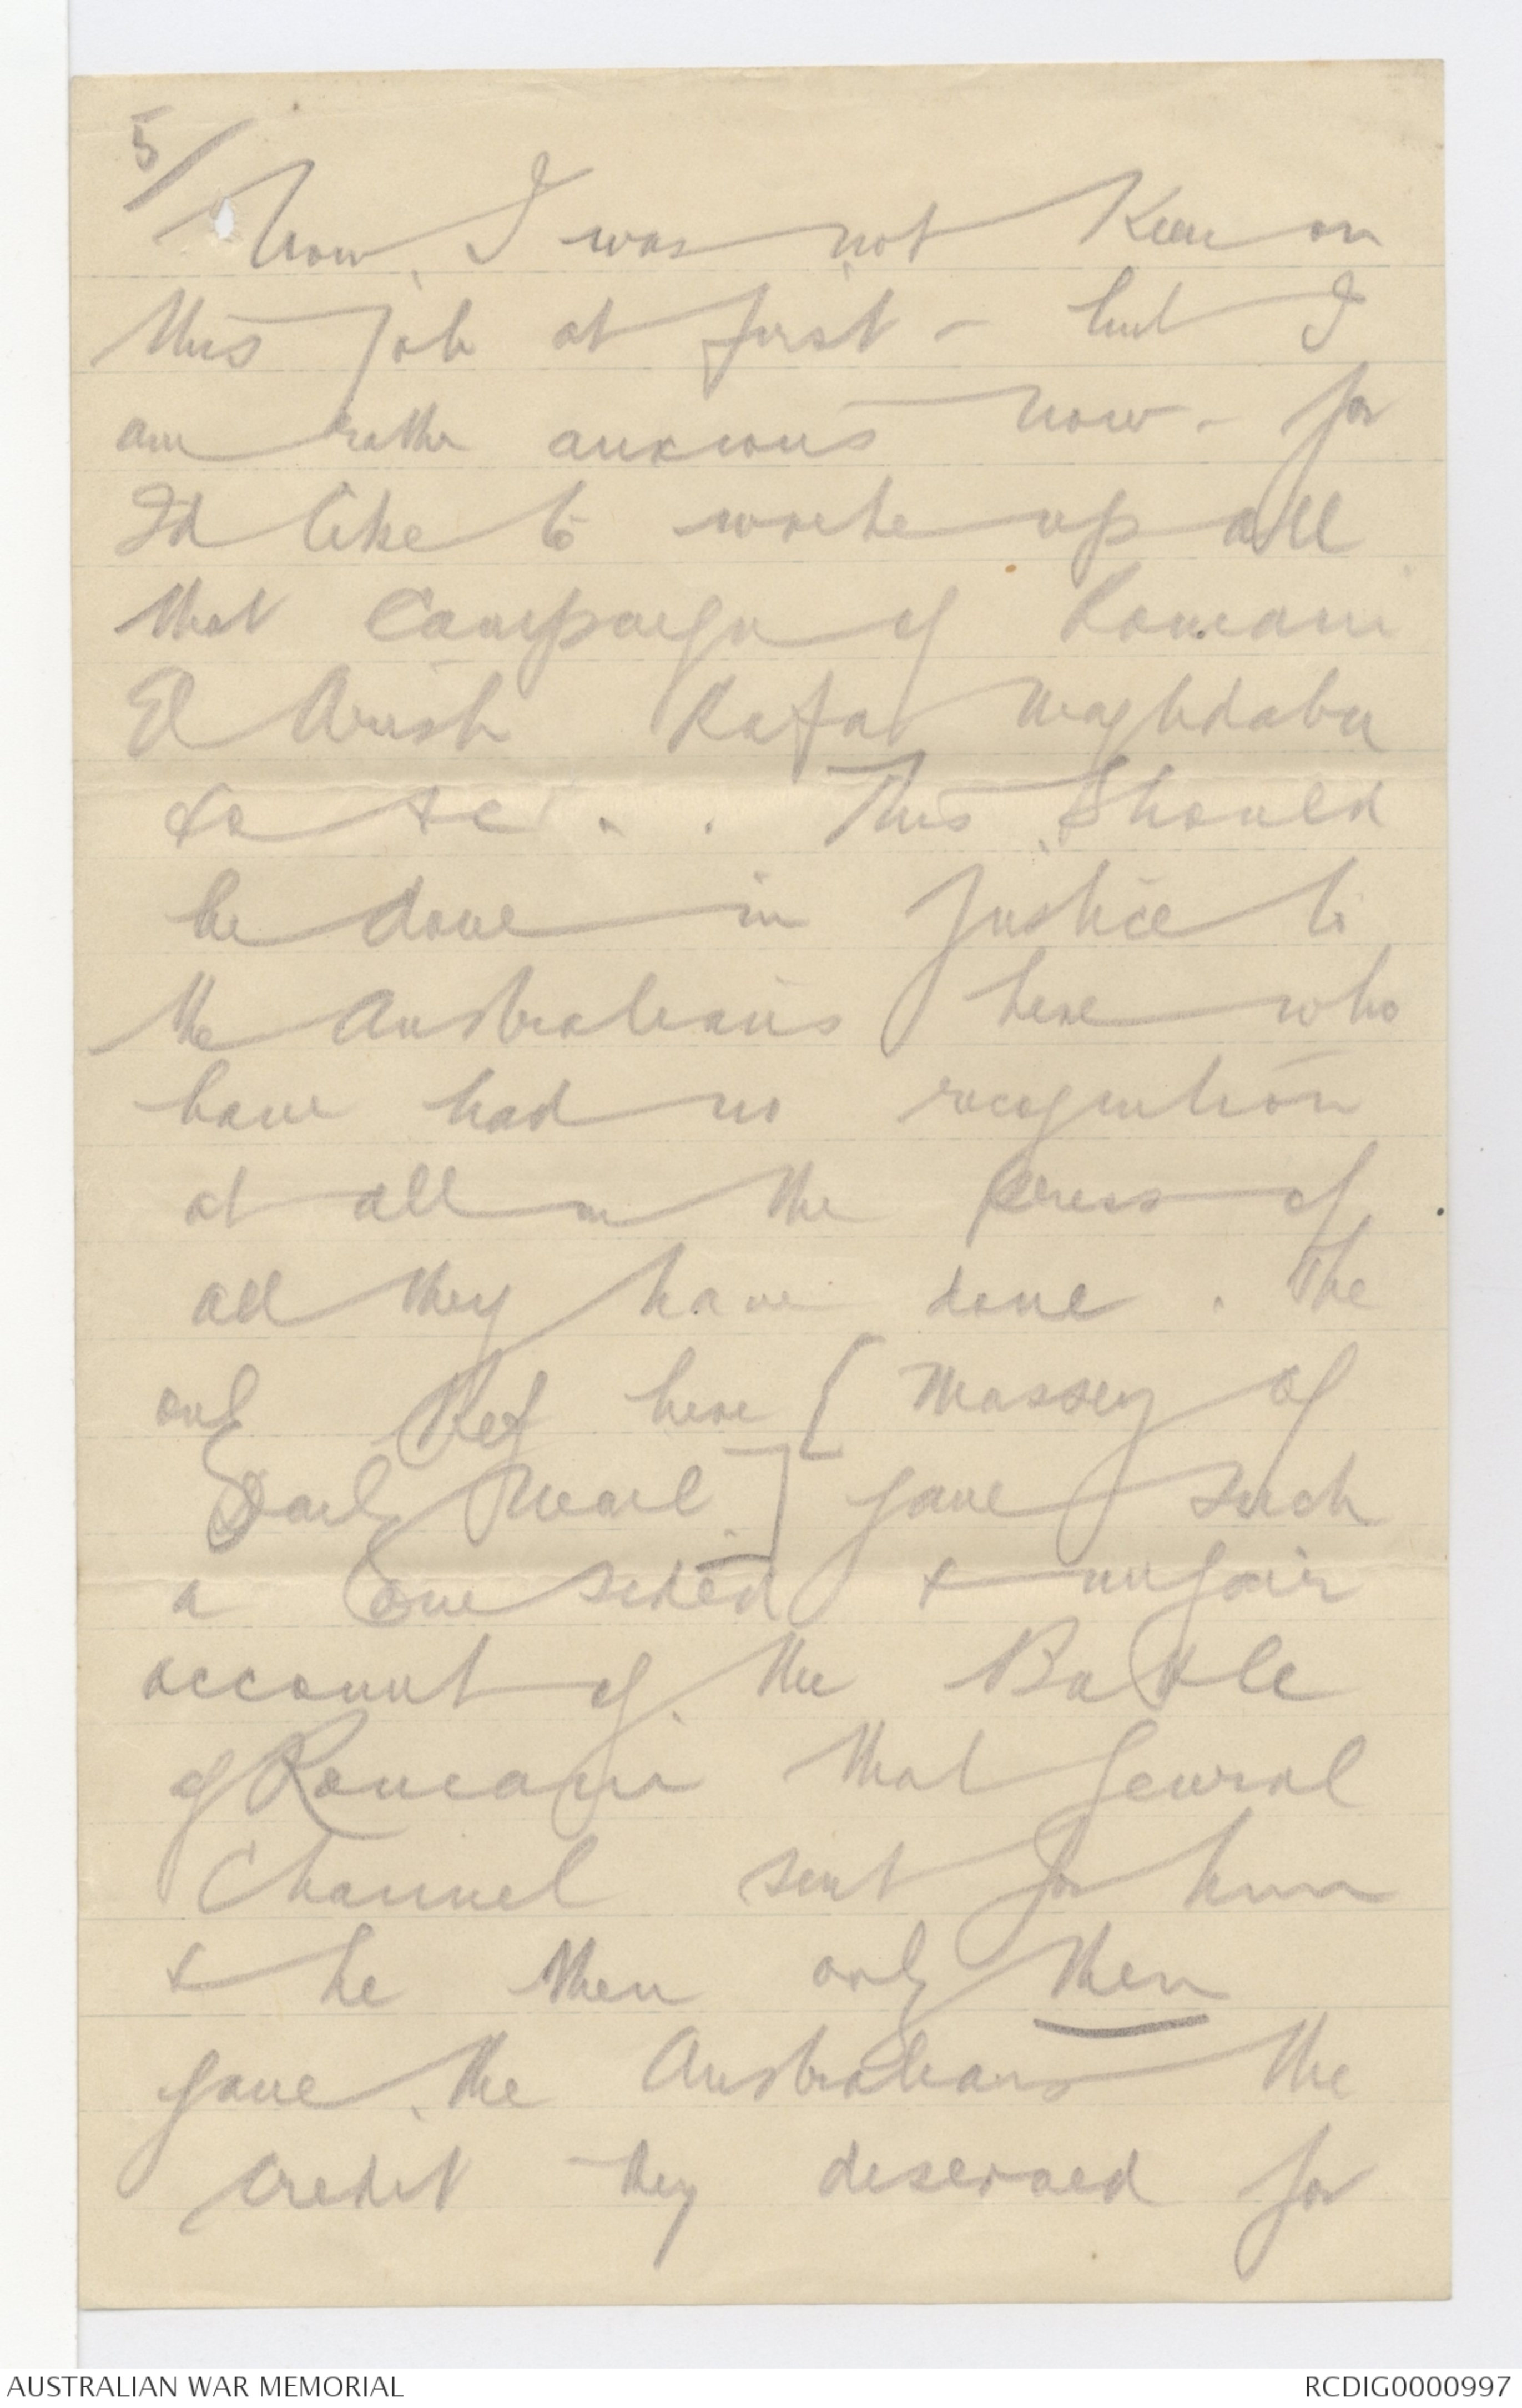 5/
Now, I was not keen on
this job at first - but I
am rather anxious now - for
I'd like to write up all
that Campaign of Romani
El Arish Rafa Maghdaba
&c &c. . This should
be done in justice to
the Australians here who
have had no recognition
at all in the press of
all they have done. The
only Rep here [Massey of
Daily Mail] gave such
a one sided & unfair
account of the Battle
of Romani that General
Chauvel sent for him
& he then only then
gave the Australians the
credit they deserved for
AUSTRALIAN WAR MEMORIAL
RCDIG0000997